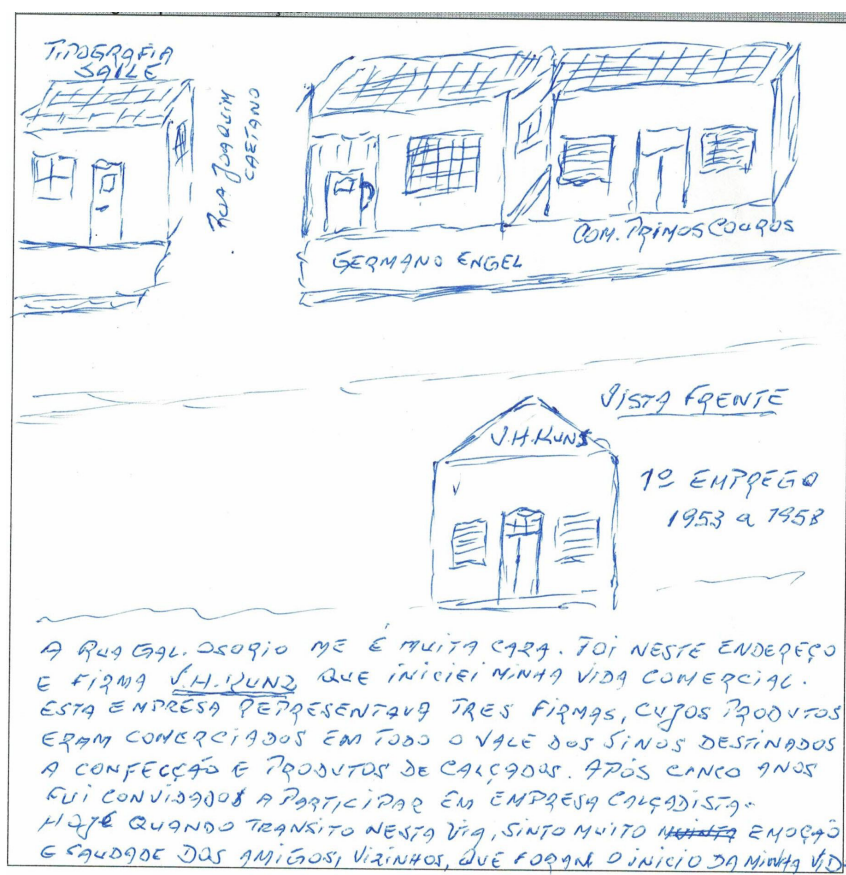 TIPOGRAFIA
SAILE
RUA JOAQUIM
CAETANO
GERMANO ENGEL
COM. PRIMOS COUROS
VISTA FRENTE
J.H.KUNZ
1º EMPREGO
1953 a 1958
A RUA GAL. OSORIO ME É MUITA CARA. FOI NESTE ENDEREÇO
E FIRMA J.H.KUNZ QUE INICIEI MINHA VIDA COMERCIAL.
ESTA EMPRESA REPRESENTAVA TRES FIRMAS, CUJOS PRODUTOS
ERAM COMERCIADOS EM TODO O VALE DOS SINOS DESTINADOS
A CONFECÇÃO E PRODUTOS DE CALÇADOS. APÓS CINCO ANOS
FUI CONVIDADO A PARTICIPAR EM EMPRESA CALÇADISTA.
HOJE QUANDO TRANSITO NESTA VIA, SINTO MUITO EMOÇÃO
E SAUDADE DOS AMIGOS, VIZINHOS, QUE FORAM O INICIO DA MINHA VID